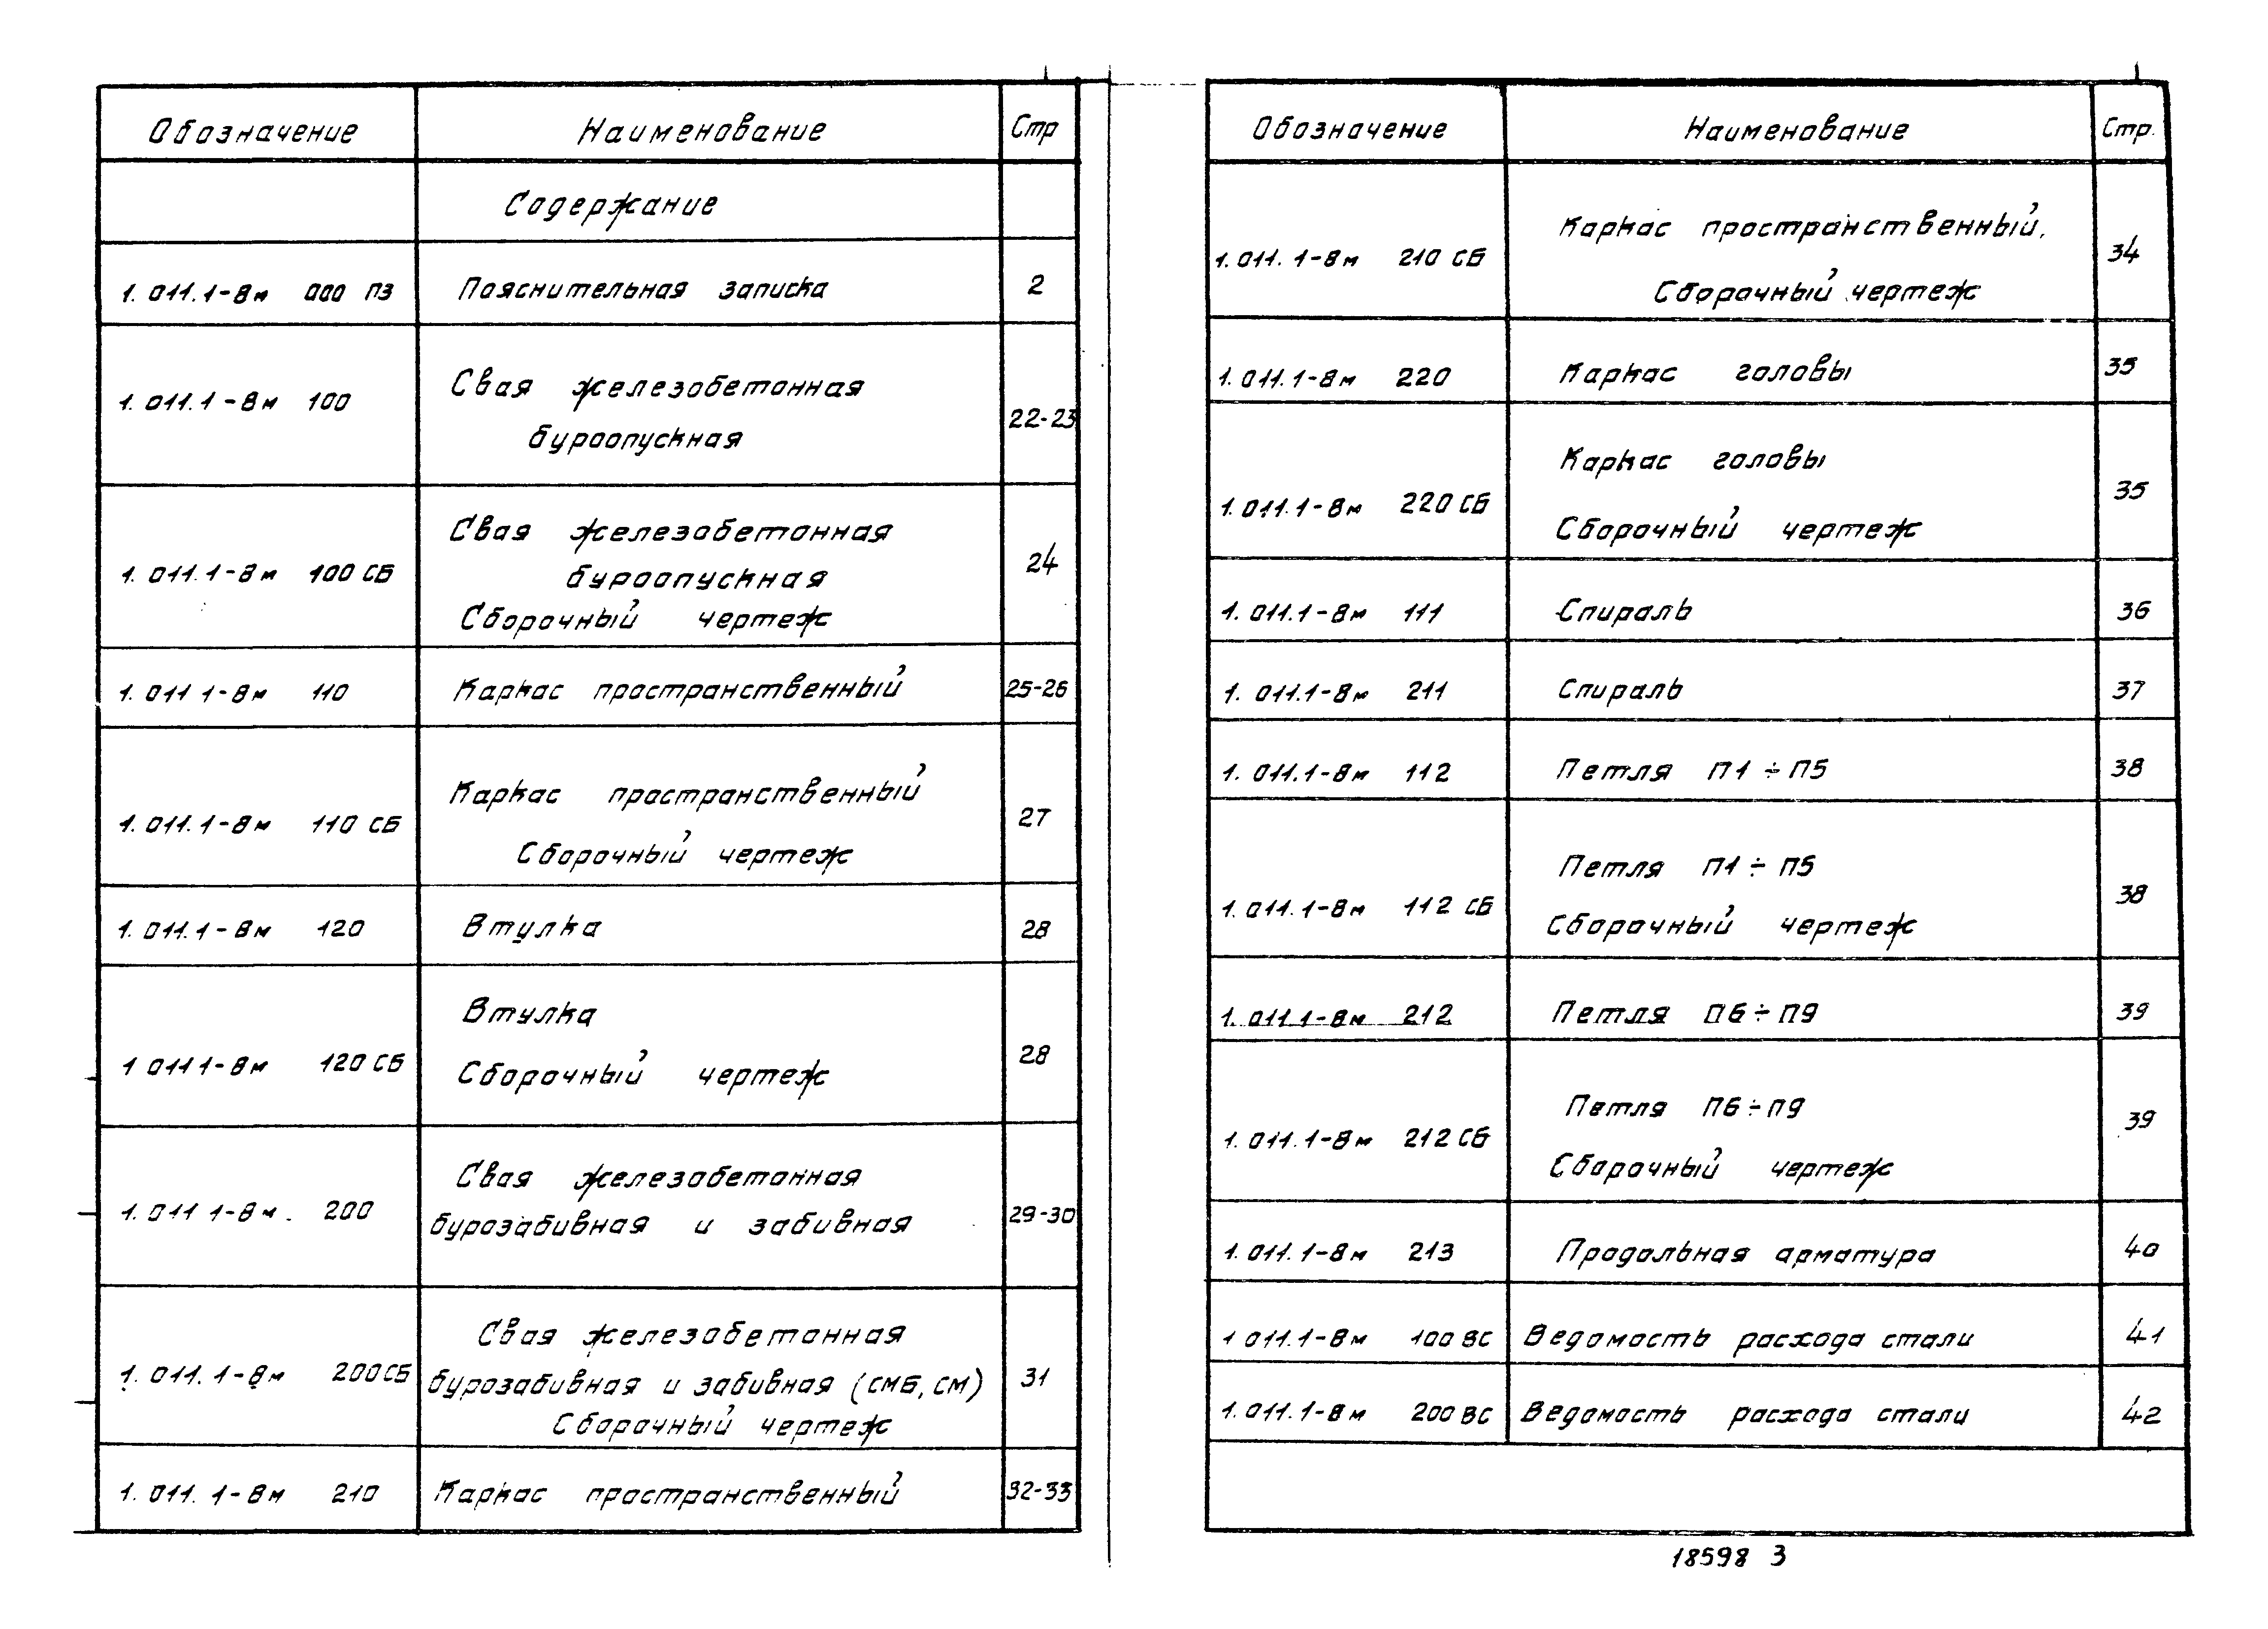 Обозначение Наименование Стр
Содержание
1.011.1-8м 000 ПЗ Пояснительная записка 2
1.011.1-8м 100 Свая железобетонная 22-23
буроопускная
1.011.1-8м 100 СБ Свая железобетонная 24
буроопускная
Сборочный чертеж
1.011 1-8м 110 Каркас пространственный 25-26
1.011.1-8м 110 СБ Каркас пространственный 27
Сборочный чертеж
1.011.1-8м 120 Втулка 28
1 011 1-8м 120 СБ Втулка 28
Сборочный чертеж
1.011 1-8м. 200 Свая железобетонная 29-30
бурозабивная и забивная
1.011.1-8м 200СБ Свая железобетонная 31
бурозабивная и забивная (СМБ, СМ)
Сборочный чертеж
1.011.1-8м 210 Каркас пространственный 32-33
Обозначение Наименование Стр.
1.011.1-8м 210 СБ Каркас пространственный. 34
Сборочный чертеж
1.011.1-8м 220 Каркас головы 35
1.011.1-8м 220 СБ Каркас головы 35
Сборочный чертеж
1.011.1-8м 111 Спираль 36
1.011.1-8м 211 Спираль 37
1.011.1-8м 112 Петля П1÷П5 38
1.011.1-8м 112 СБ Петля П1÷П5 38
Сборочный чертеж
1.011.1-8м 212 Петля П6÷П9 39
1.011.1-8м 212 СБ Петля П6÷П9 39
Сборочный чертеж
1.011.1-8м 213 Продольная арматура 40
1 011.1-8м 100 ВС Ведомость расхода стали 41
1.011.1-8м 200 ВС Ведомость расхода стали 42
18598 3